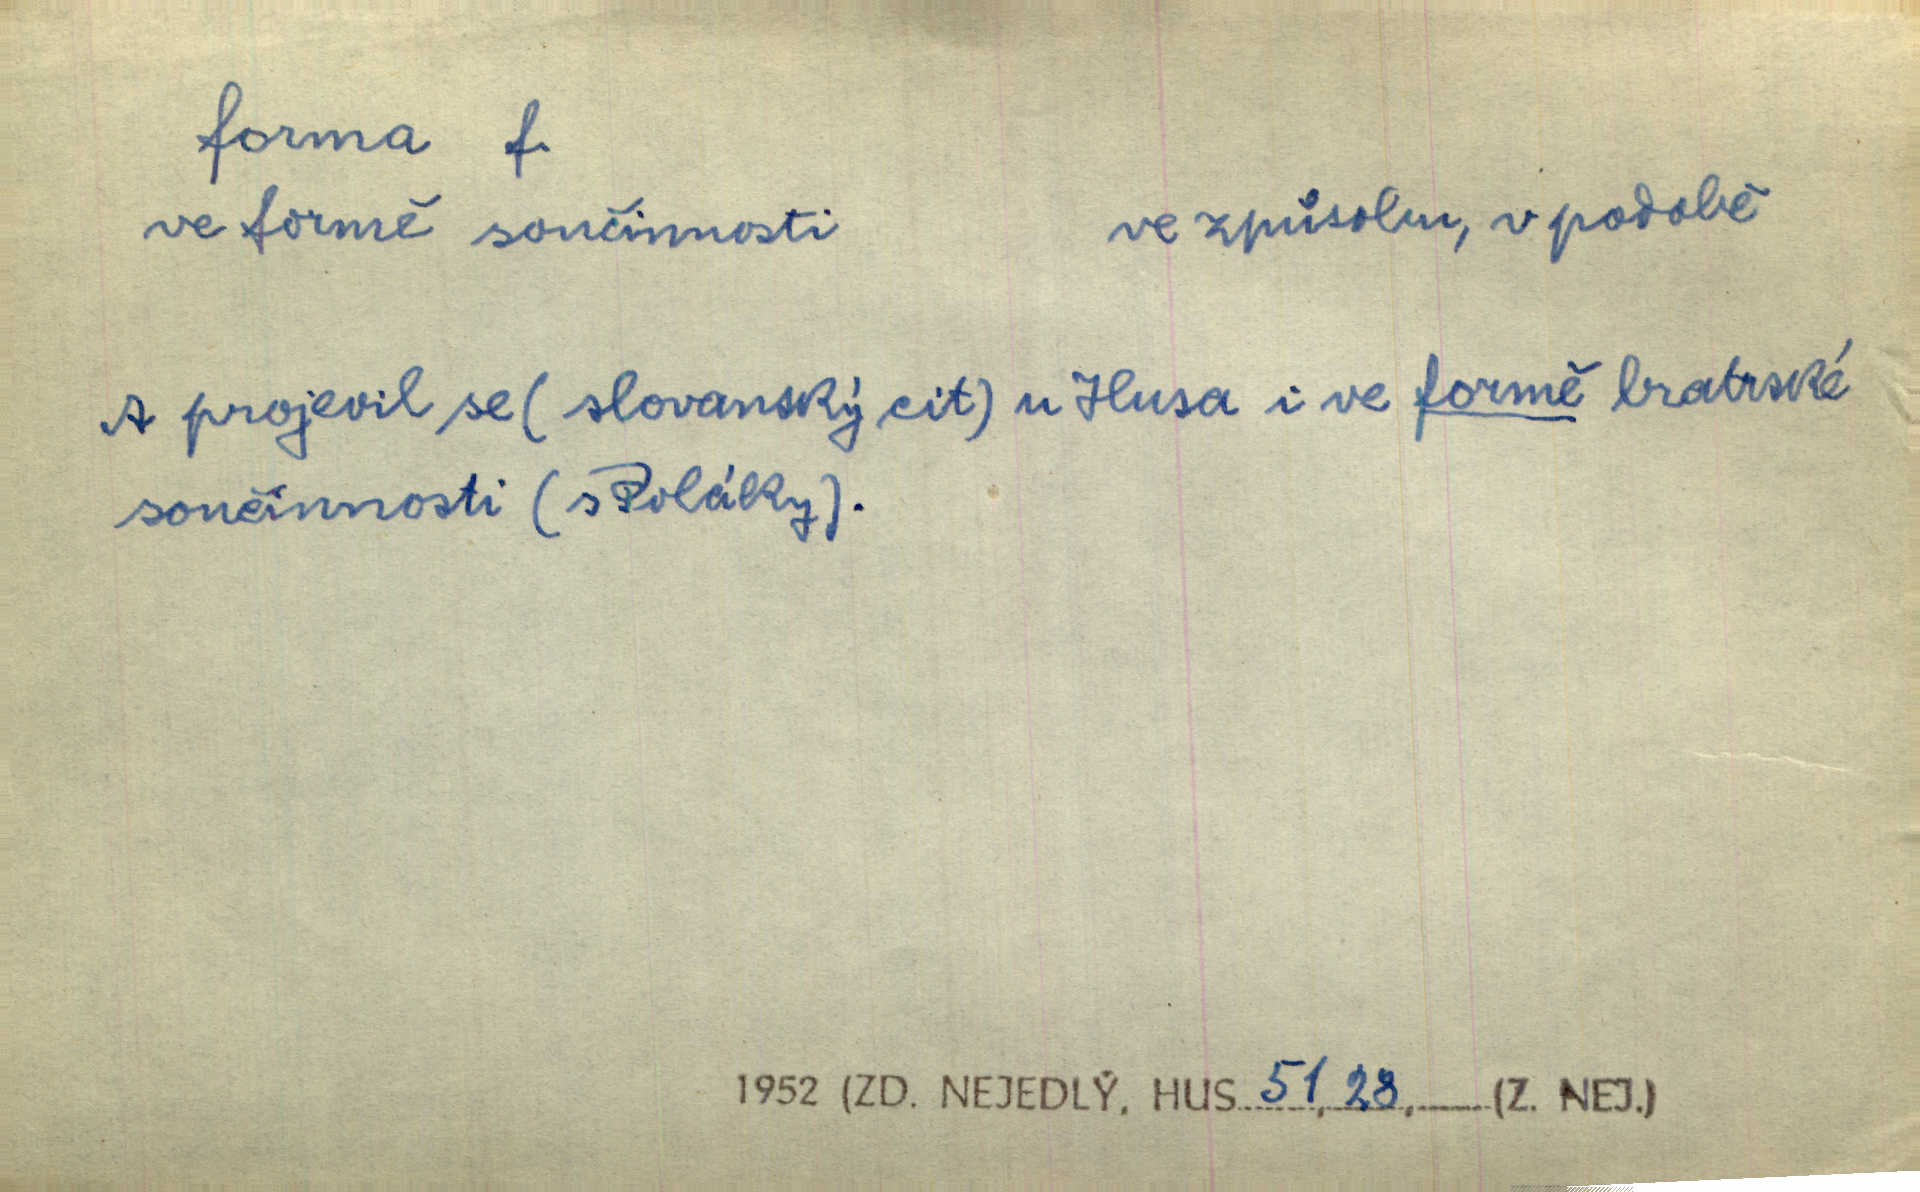 forma f.
ve formě součinnosti ve způsobu, v podobě
A projevil se (slovanský cit) u Husa i ve formě bratrské
součinnosti (s Poláky).
1952 (ZD. NEJEDLÝ, HUS 51, 28, (Z. NEJ.)